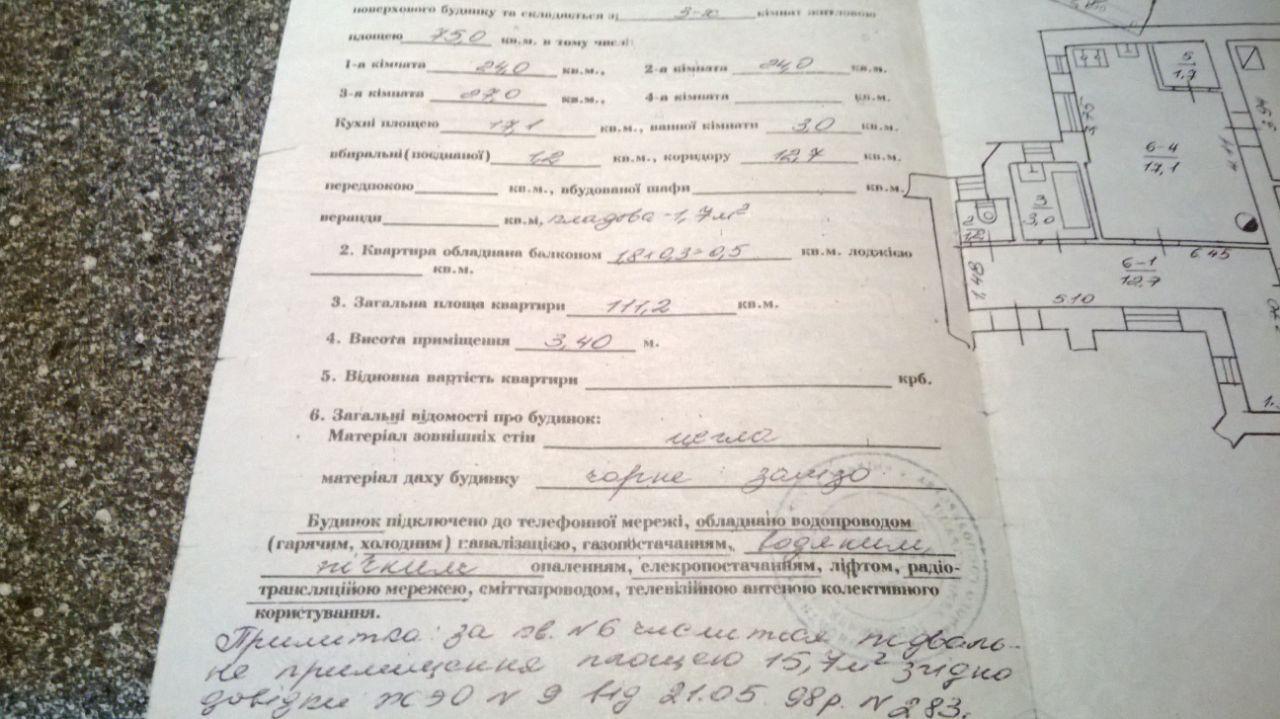 поверхового будинку та складається з 3-х кімнат житловою
площею 75,0 кв.м. в тому числі:
1-а кімната 24,0 кв.м., 2-а кімната 24,0 кв.м.
3-я кімната 27,0 кв.м., 4-а кімната кв.м.
Кухні площею 17,1 кв.м., ванної кімнати 3,0 кв.м.
вбиральні (поєднаної) 1,2 кв.м., коридору 12,7 кв.м.
передпокою кв.м., вбудованої шафи кв.м.
веранди кв.м, кладова - 1,7м²
2. Квартира обладнана балконом 1,8×0,3=0,5 кв.м. лоджією
кв.м.
3. Загальна площа квартири 111,2 кв.м.
4. Висота приміщення 3,40 м.
5. Відновна вартість квартири крб.
6. Загальні відомості про будинок:
Матеріал зовнішніх стін цегла
матеріал даху будинку чорне залізо
Будинок підключено до телефонної мережі, обладнано водопроводом
(гарячим, холодним) каналізацією, газопостачанням, водяним,
пічним опаленням, елекропостачанням, ліфтом, радіо-
трансляційною мережею, сміттєпроводом, телевізійною антеною колективного
користування.
Примітка: за кв. №6 числиться підваль-
не приміщення площею 15,7м² згідно
довідки ЖЭО №9 від 21.05.98р. №283.
5
1,7
3.75
6-4
17,1
4.11
3
3,0
2
1,2
6.45
1.48
6-1
12,7
5.10